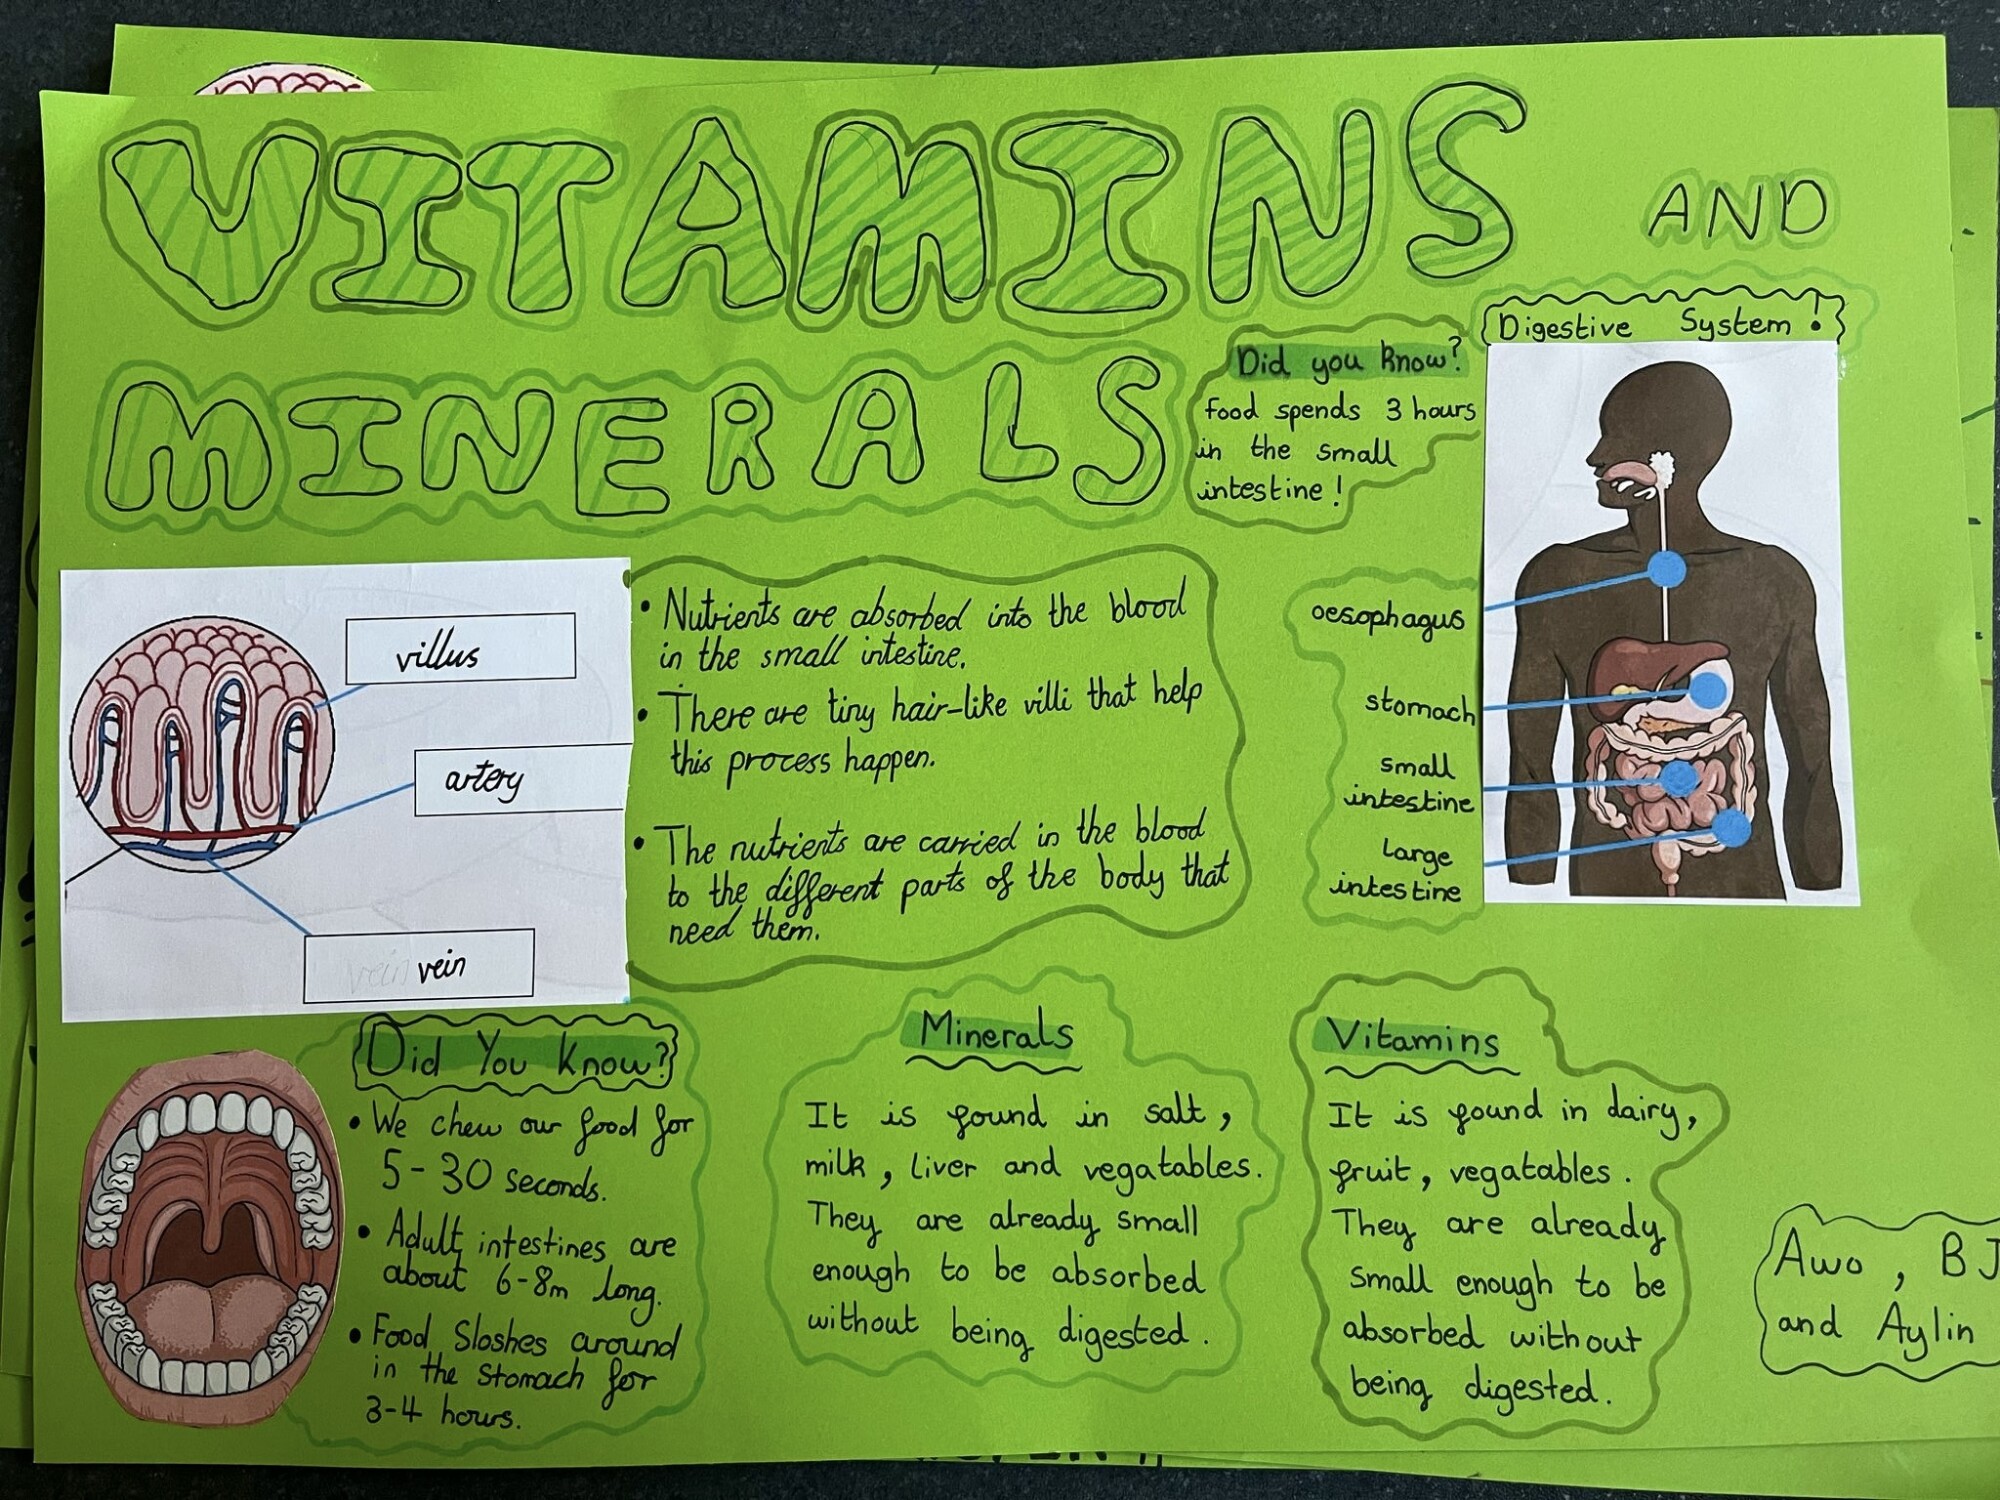 VITAMINS AND
MINERALS
Did you know?
food spends 3 hours
in the small
intestine!
Digestive System!
oesophagus
stomach
small
intestine
large
intestine
villus
artery
vein vein
• Nutrients are absorbed into the blood
in the small intestine.
• There are tiny hair-like villi that help
this process happen.
• The nutrients are carried in the blood
to the different parts of the body that
need them.
Did You Know?
• We chew our food for
5-30 seconds.
• Adult intestines are
about 6-8m long.
• Food Sloshes around
in the stomach for
3-4 hours.
Minerals
It is found in salt,
milk, liver and vegatables.
They are already small
enough to be absorbed
without being digested.
Vitamins
It is found in dairy,
fruit, vegatables.
They are already
small enough to be
absorbed without
being digested.
Awo, BJ
and Aylin